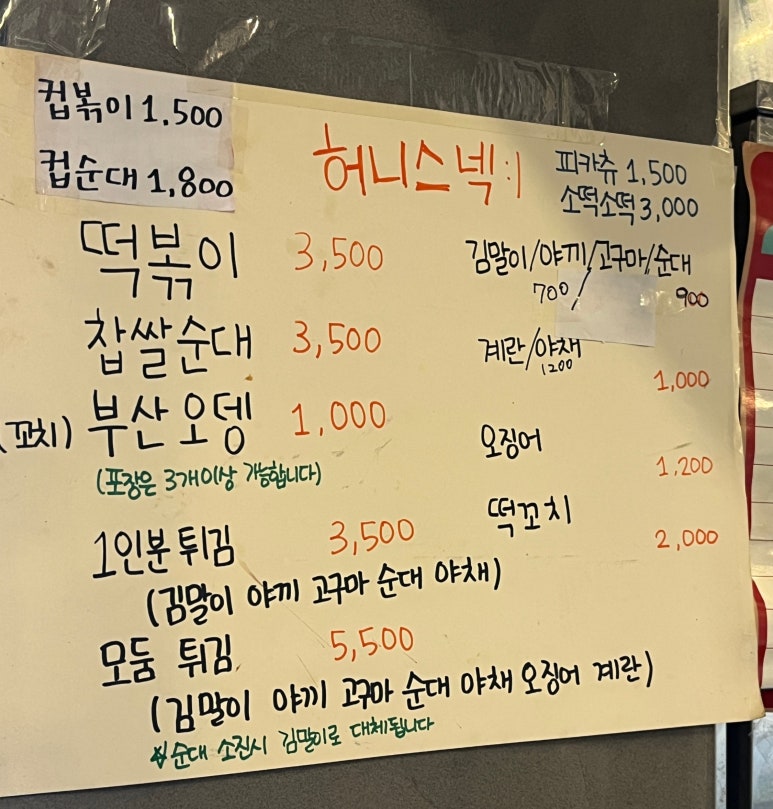 컵볶이 1,500
컵순대 1,800
허니스넥:)
피카츄 1,500
소떡소떡 3,000
떡볶이 3,500
찹쌀순대 3,500
(꼬치) 부산오뎅 1,000
(포장은 3개이상 가능합니다)
1인분 튀김 3,500
(김말이 야끼 고구마 순대 야채)
모둠 튀김 5,500
(김말이 야끼 고구마 순대 야채 오징어 계란)
☆순대 소진시 김말이로 대체됩니다
김말이/야끼/고구마/순대
700/ 900
계란/야채
1200
1,000
오징어
1,200
떡꼬치
2,000